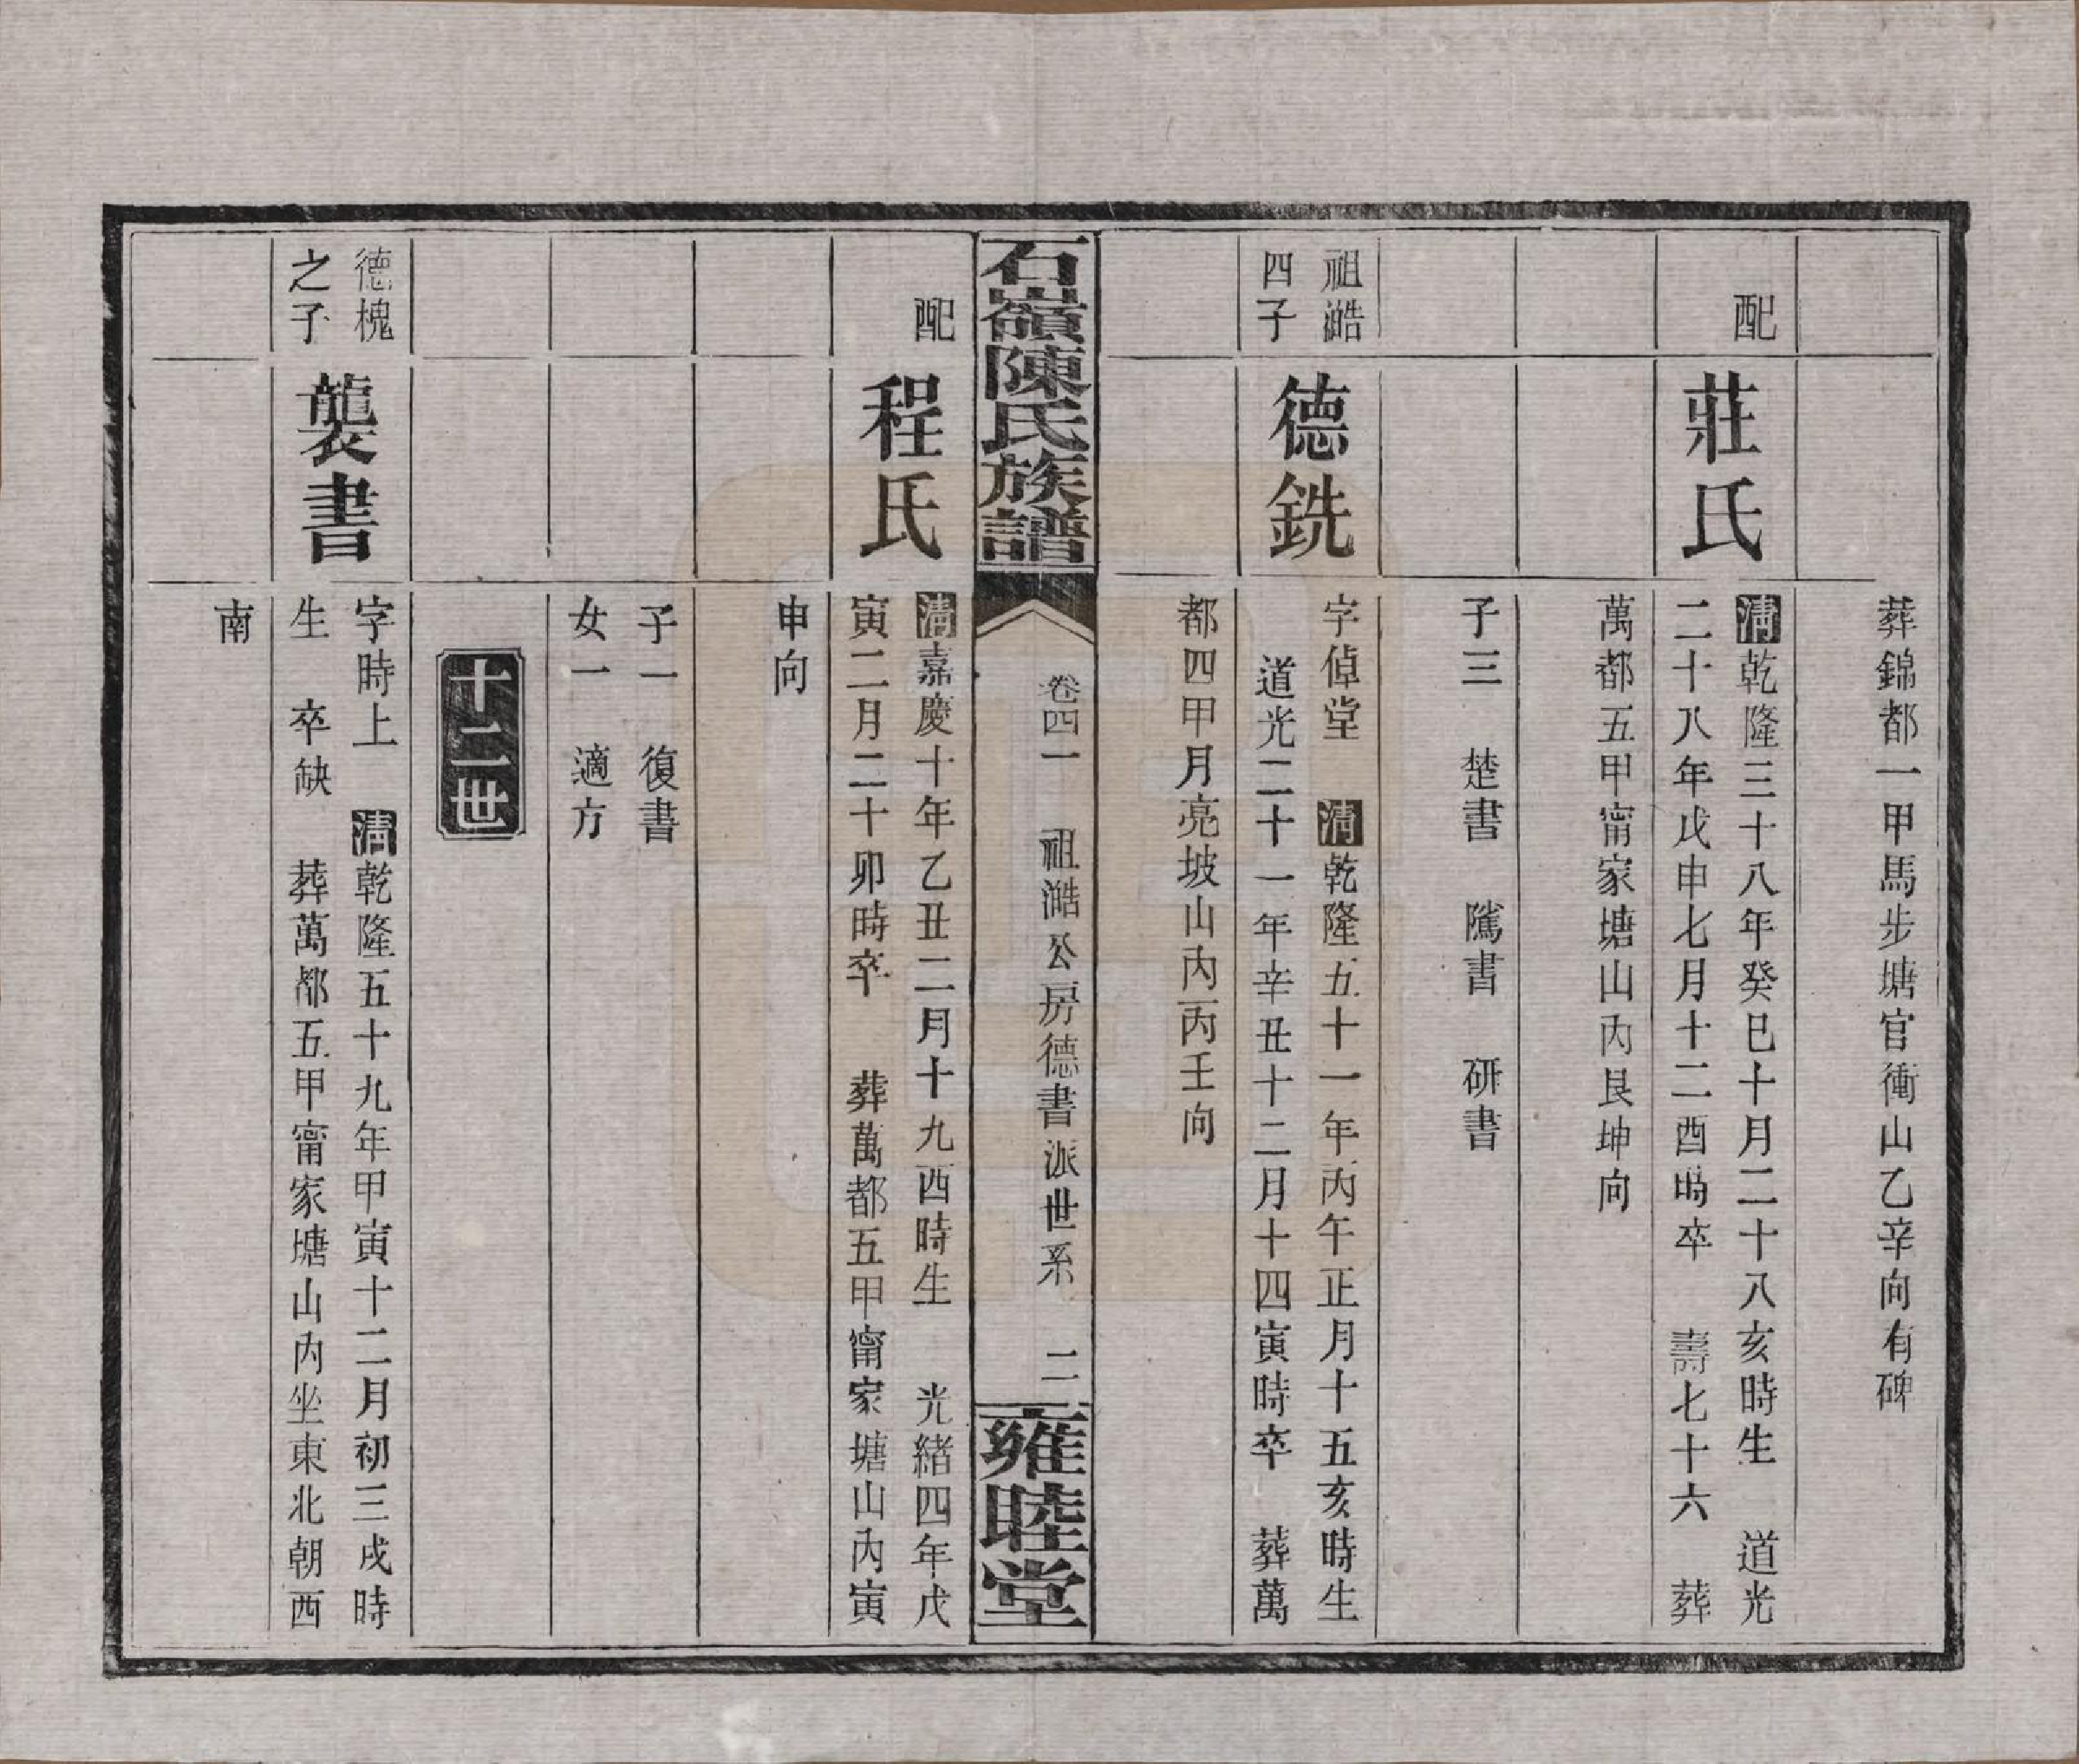 葬錦都一甲馬步塘官衝山乙辛向有碑
配
莊氏
清乾隆三十八年癸巳十月二十八亥時生　道光
二十八年戊申七月十二酉時卒　壽七十六　葬
萬都五甲甯家塘山內艮坤向
子三　楚書　隲書　研書
祖澔
四子
德銑
字倬堂　清乾隆五十一年丙午正月十五亥時生
道光二十一年辛丑十二月十四寅時卒　葬萬
都四甲月亮坡山內丙壬向
石嶺陳氏族譜
卷四一　祖澔公房德書派世系　二
雍睦堂
配
程氏
清嘉慶十年乙丑二月十九酉時生　光緒四年戊
寅二月二十卯時卒　葬萬都五甲甯家塘山內寅
申向
子一　復書
女一　適方
十二世
德槐
之子
襲書
字時上　清乾隆五十九年甲寅十二月初三戌時
生　卒缺　葬萬都五甲甯家塘山內坐東北朝西
南